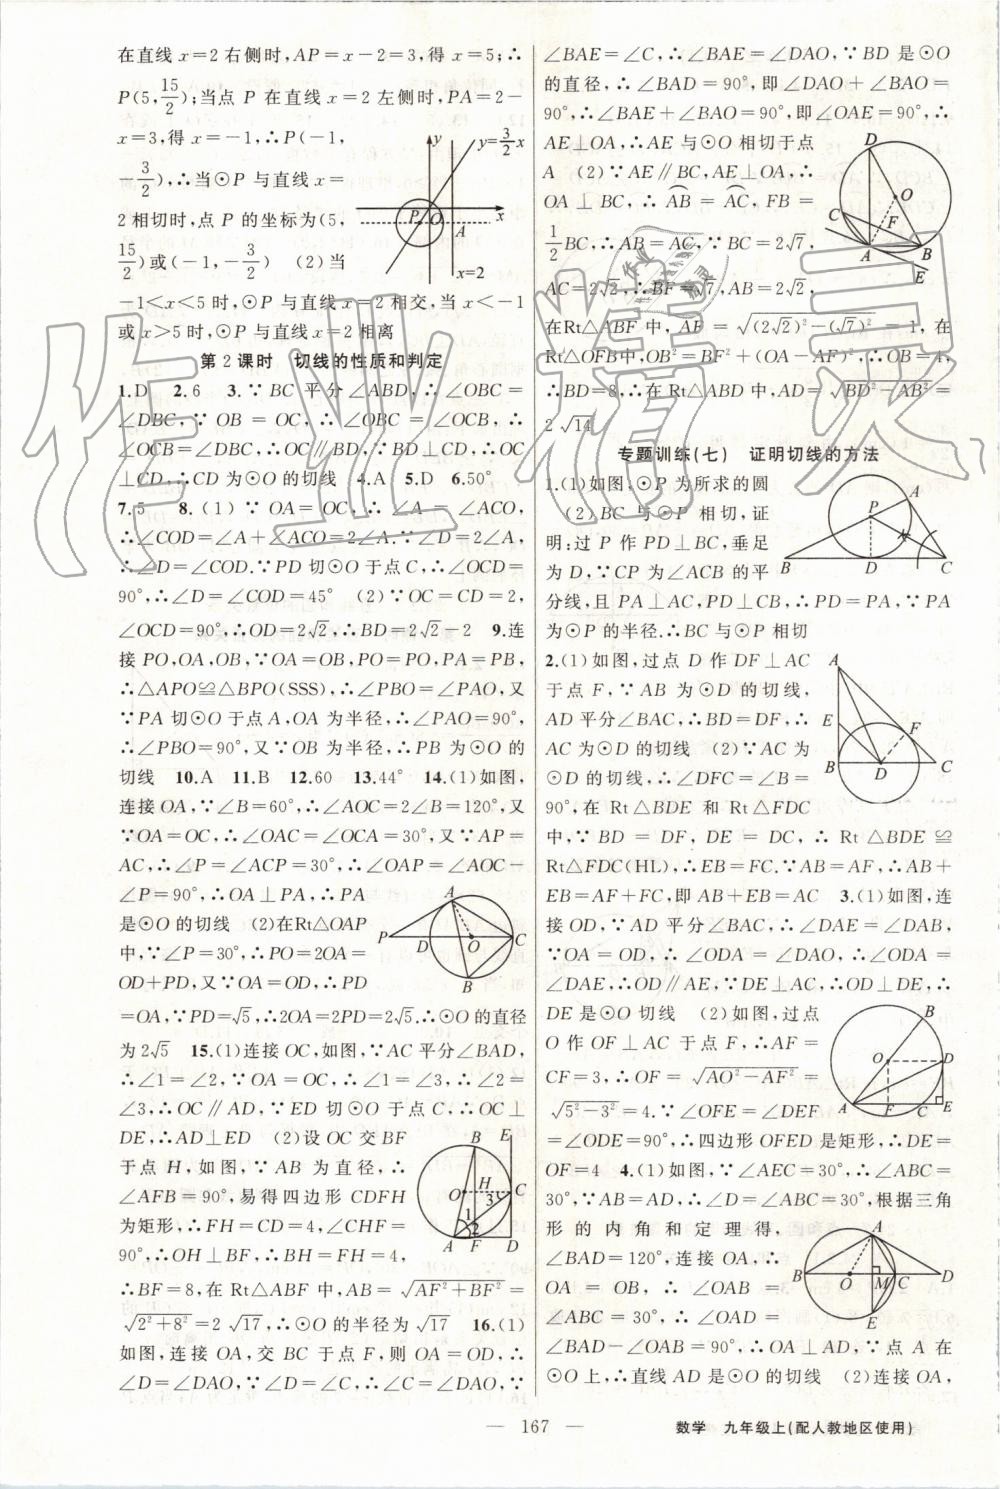 在直线x=2右侧时,AP=x-2=3,得x=5;∴
P(5,15/2);当点 P 在直线x=2左侧时,PA=2-
x=3,得x=-1,∴P(-1,
-3/2),∴当⊙P与直线x=
2相切时,点 P 的坐标为(5,
15/2)或(-1,-3/2) (2)当
-1<x<5时,⊙P与直线x=2相交,当x<-1
或x>5时,⊙P与直线x=2相离
y
y=3/2x
P O x
A
x=2
第2课时 切线的性质和判定
1.D 2.6 3.∵BC平分∠ABD,∴∠OBC=
∠DBC,∵OB=OC,∴∠OBC=∠OCB,∴
∠OCB=∠DBC,∴OC∥BD,∵BD⊥CD,∴OC
⊥CD,∴CD为⊙O的切线 4.A 5.D 6.50°
7.5 8.(1)∵OA=OC,∴∠A=∠ACO,
∴∠COD=∠A+∠ACO=2∠A.∵∠D=2∠A,
∴∠D=∠COD.∵PD切⊙O于点C,∴∠OCD=
90°,∴∠D=∠COD=45° (2)∵OC=CD=2,
∠OCD=90°,∴OD=2√2,∴BD=2√2-2 9.连
接PO,OA,OB,∵OA=OB,PO=PO,PA=PB,
∴△APO≌△BPO(SSS),∴∠PBO=∠PAO,又
∵PA切⊙O于点A,OA为半径,∴∠PAO=90°,
∴∠PBO=90°,又∵OB为半径,∴PB为⊙O的
切线 10.A 11.B 12.60 13.44° 14.(1)如图,
连接OA,∵∠B=60°,∴∠AOC=2∠B=120°,又
∵OA=OC,∴∠OAC=∠OCA=30°;又∵AP=
AC,∴∠P=∠ACP=30°,∴∠OAP=∠AOC-
∠P=90°,∴OA⊥PA,∴PA
是⊙O的切线 (2)在Rt△OAP
中,∵∠P=30°,∴PO=2OA=
OD+PD,又∵OA=OD,∴PD
=OA,∵PD=√5,∴2OA=2PD=2√5.∴⊙O的直径
为2√5 15.(1)连接OC,如图,∵AC平分∠BAD,
∴∠1=∠2,∵OA=OC,∴∠1=∠3,∴∠2=
∠3,∴OC∥AD,∵ED切⊙O于点C,∴OC⊥
DE,∴AD⊥ED (2)设OC交BF
于点H,如图,∵AB为直径,∴
∠AFB=90°,易得四边形CDFH
为矩形,∴FH=CD=4,∠CHF=
90°,∴OH⊥BF,∴BH=FH=4,
∴BF=8,在Rt△ABF中,AB=√AF²+BF²=
√2²+8²=2√17,∴⊙O的半径为√17 16.(1)
如图,连接OA,交BC于点F,则OA=OD,∴
∠D=∠DAO,∵∠D=∠C,∴∠C=∠DAO,∵
A
P D O C
B
B E
O H 3 C
1 2
A F D
∠BAE=∠C,∴∠BAE=∠DAO,∵BD是⊙O
的直径,∴∠BAD=90°,即∠DAO+∠BAO=
90°,∴∠BAE+∠BAO=90°,即∠OAE=90°,∴
AE⊥OA,∴AE与⊙O相切于点
A (2)∵AE∥BC,AE⊥OA,∴
OA⊥BC,∴AB=AC,FB=
1/2BC,∴AB=AC,∵BC=2√7,
AC=2√2,∴BF=√7,AB=2√2,
在Rt△ABF中,AF=√(2√2)²-(√7)²=1,在
Rt△OFB中,OB²=BF²+(OA-AF)²,∴OB=4,
∴BD=8,∴在Rt△ABD中,AD=√BD²-AB²=
2√14
D
O
C F
A B
E
专题训练(七) 证明切线的方法
1.(1)如图,⊙P为所求的圆
(2)BC与⊙P相切,证
明:过P作PD⊥BC,垂足
为D,∵CP为∠ACB的平
分线,且PA⊥AC,PD⊥CB,∴PD=PA,∵PA
为⊙P的半径.∴BC与⊙P相切
P A
B D C
2.(1)如图,过点D作DF⊥AC
于点F,∵AB为⊙D的切线,
AD平分∠BAC,∴BD=DF,∴
AC为⊙D的切线 (2)∵AC为
⊙D的切线,∴∠DFC=∠B=
90°,在Rt△BDE和Rt△FDC
中,∵BD=DF,DE=DC,∴Rt△BDE≌
Rt△FDC(HL),∴EB=FC.∵AB=AF,∴AB+
EB=AF+FC,即AB+EB=AC 3.(1)如图,连
接OD,∵AD平分∠BAC,∴∠DAE=∠DAB,
∵OA=OD,∴∠ODA=∠DAO,∴∠ODA=
∠DAE,∴OD∥AE,∵DE⊥AC,∴OD⊥DE,∴
DE是⊙O切线 (2)如图,过点
O作OF⊥AC于点F,∴AF=
CF=3,∴OF=√AO²-AF²=
√5²-3²=4.∵∠OFE=∠DEF
=∠ODE=90°,∴四边形OFED是矩形,∴DE=
OF=4 4.(1)如图,∵∠AEC=30°,∴∠ABC=
30°,∵AB=AD,∴∠D=∠ABC=30°,根据三角
形的内角和定理得,
∠BAD=120°,连接OA,∴
OA=OB,∴∠OAB=
∠ABC=30°,∴∠OAD=
∠BAD-∠OAB=90°,∴OA⊥AD,∵点A在
⊙O上,∴直线AD是⊙O的切线 (2)连接OA,
A
E F
B D C
B
O D
A F C E
A
B O M C D
E
— 167 —
数学 九年级上(配人教地区使用)
作业精灵